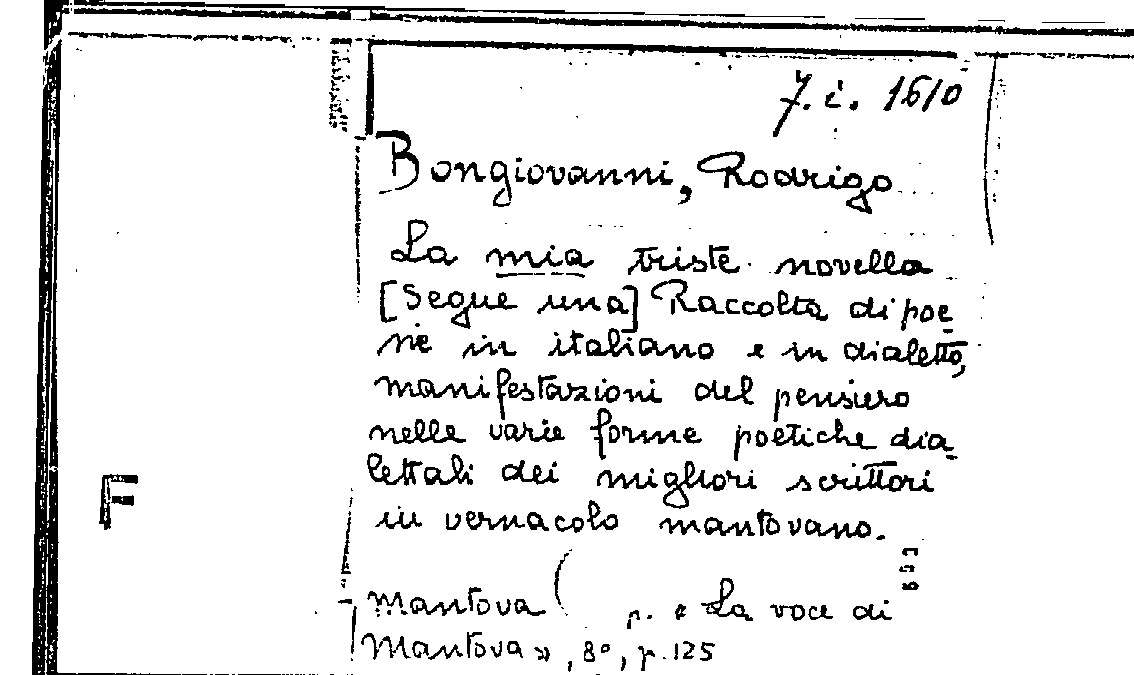 7. i. 1610
Bongiovanni, Rodrigo
La mia triste novella
[Segue una] Raccolta di poe-
sie in italiano e in dialetto,
manifestazioni del pensiero
nelle varie forme poetiche dia-
lettali dei migliori scrittori
in vernacolo mantovano.
F
Mantova ( p. « La voce di
Mantova », 8°, p. 125